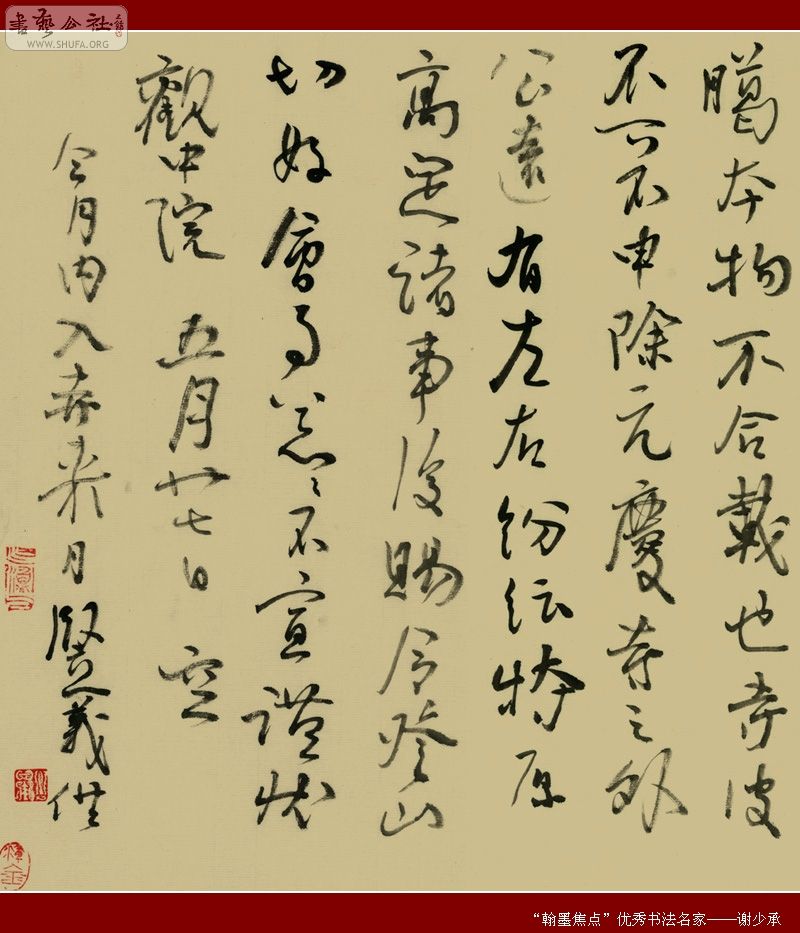 書藝公社
WWW.SHUFA.ORG
本物不合載也寺
不可不申除元慶寺之外
公遠有左右紛紜特原
高 諸事後賜 登山
切 會 不宣謹状
觀中院 五月廿七日 空
今月内入 来月豎義供
“翰墨焦点”优秀书法名家——谢少承